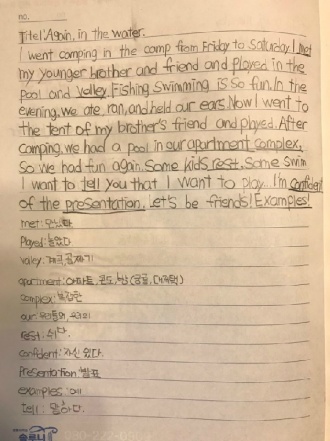 no.
Titel: Again, in the water.
I went camping in the camp from Friday to Saturday. I met
my younger brother and friend and played in the
pool and valley. Fishing Swimming is so fun. In the
evening, we ate, ran, and held our ears. Now I went to
the tent of my brother's friend and played. After
camping, we had a pool in our apartment complex,
So we had fun again. Some kids rest, Some swim
I want to tell you that I want to play. I'm confident
of the presentation. Let's be friends! Examples!
met: 만났다
Played: 놀았다
valley: 계곡, 골짜기
apartment: 아파트, 콘도,
complex: 복잡한
our: 우리들의
rest: 쉬다.
confident: 자신 있다.
Presentation: 발표
examples: 예
tell: 말하다.